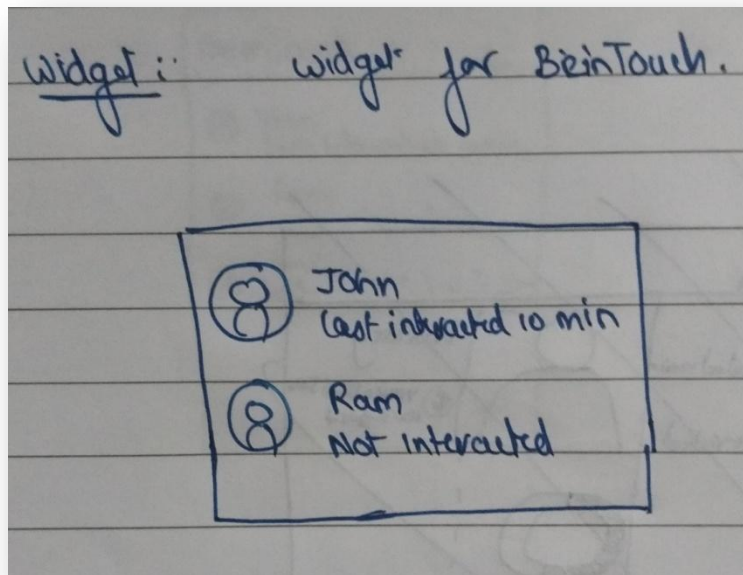 Widget :
widget for BeinTouch.
John
Last interacted 10 min
Ram
Not interacted